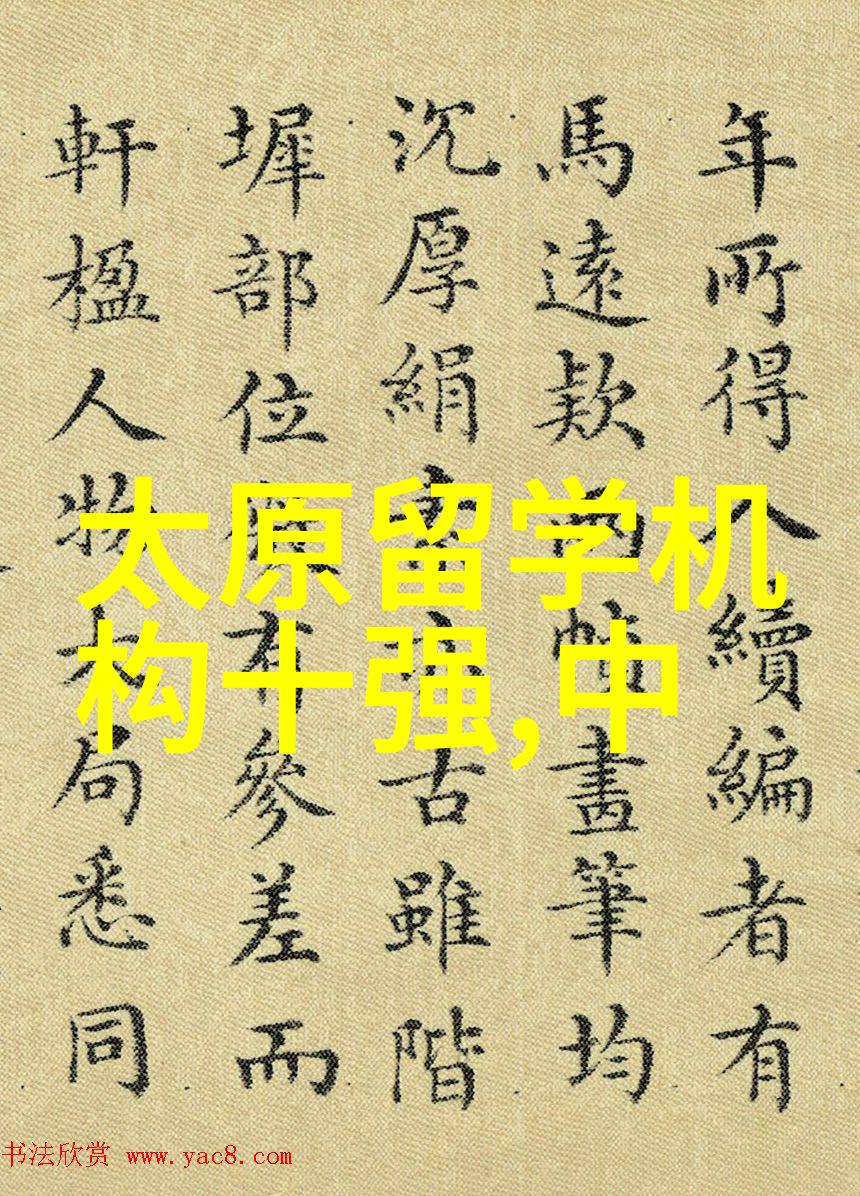 年所得入續編者有
馬遠欵兩幀畫筆均
沉厚絹素亦古雖階
墀部位有參差而
軒楹人物大局悉同
太原留学机
构十强,中
书法欣赏 www.yac8.com